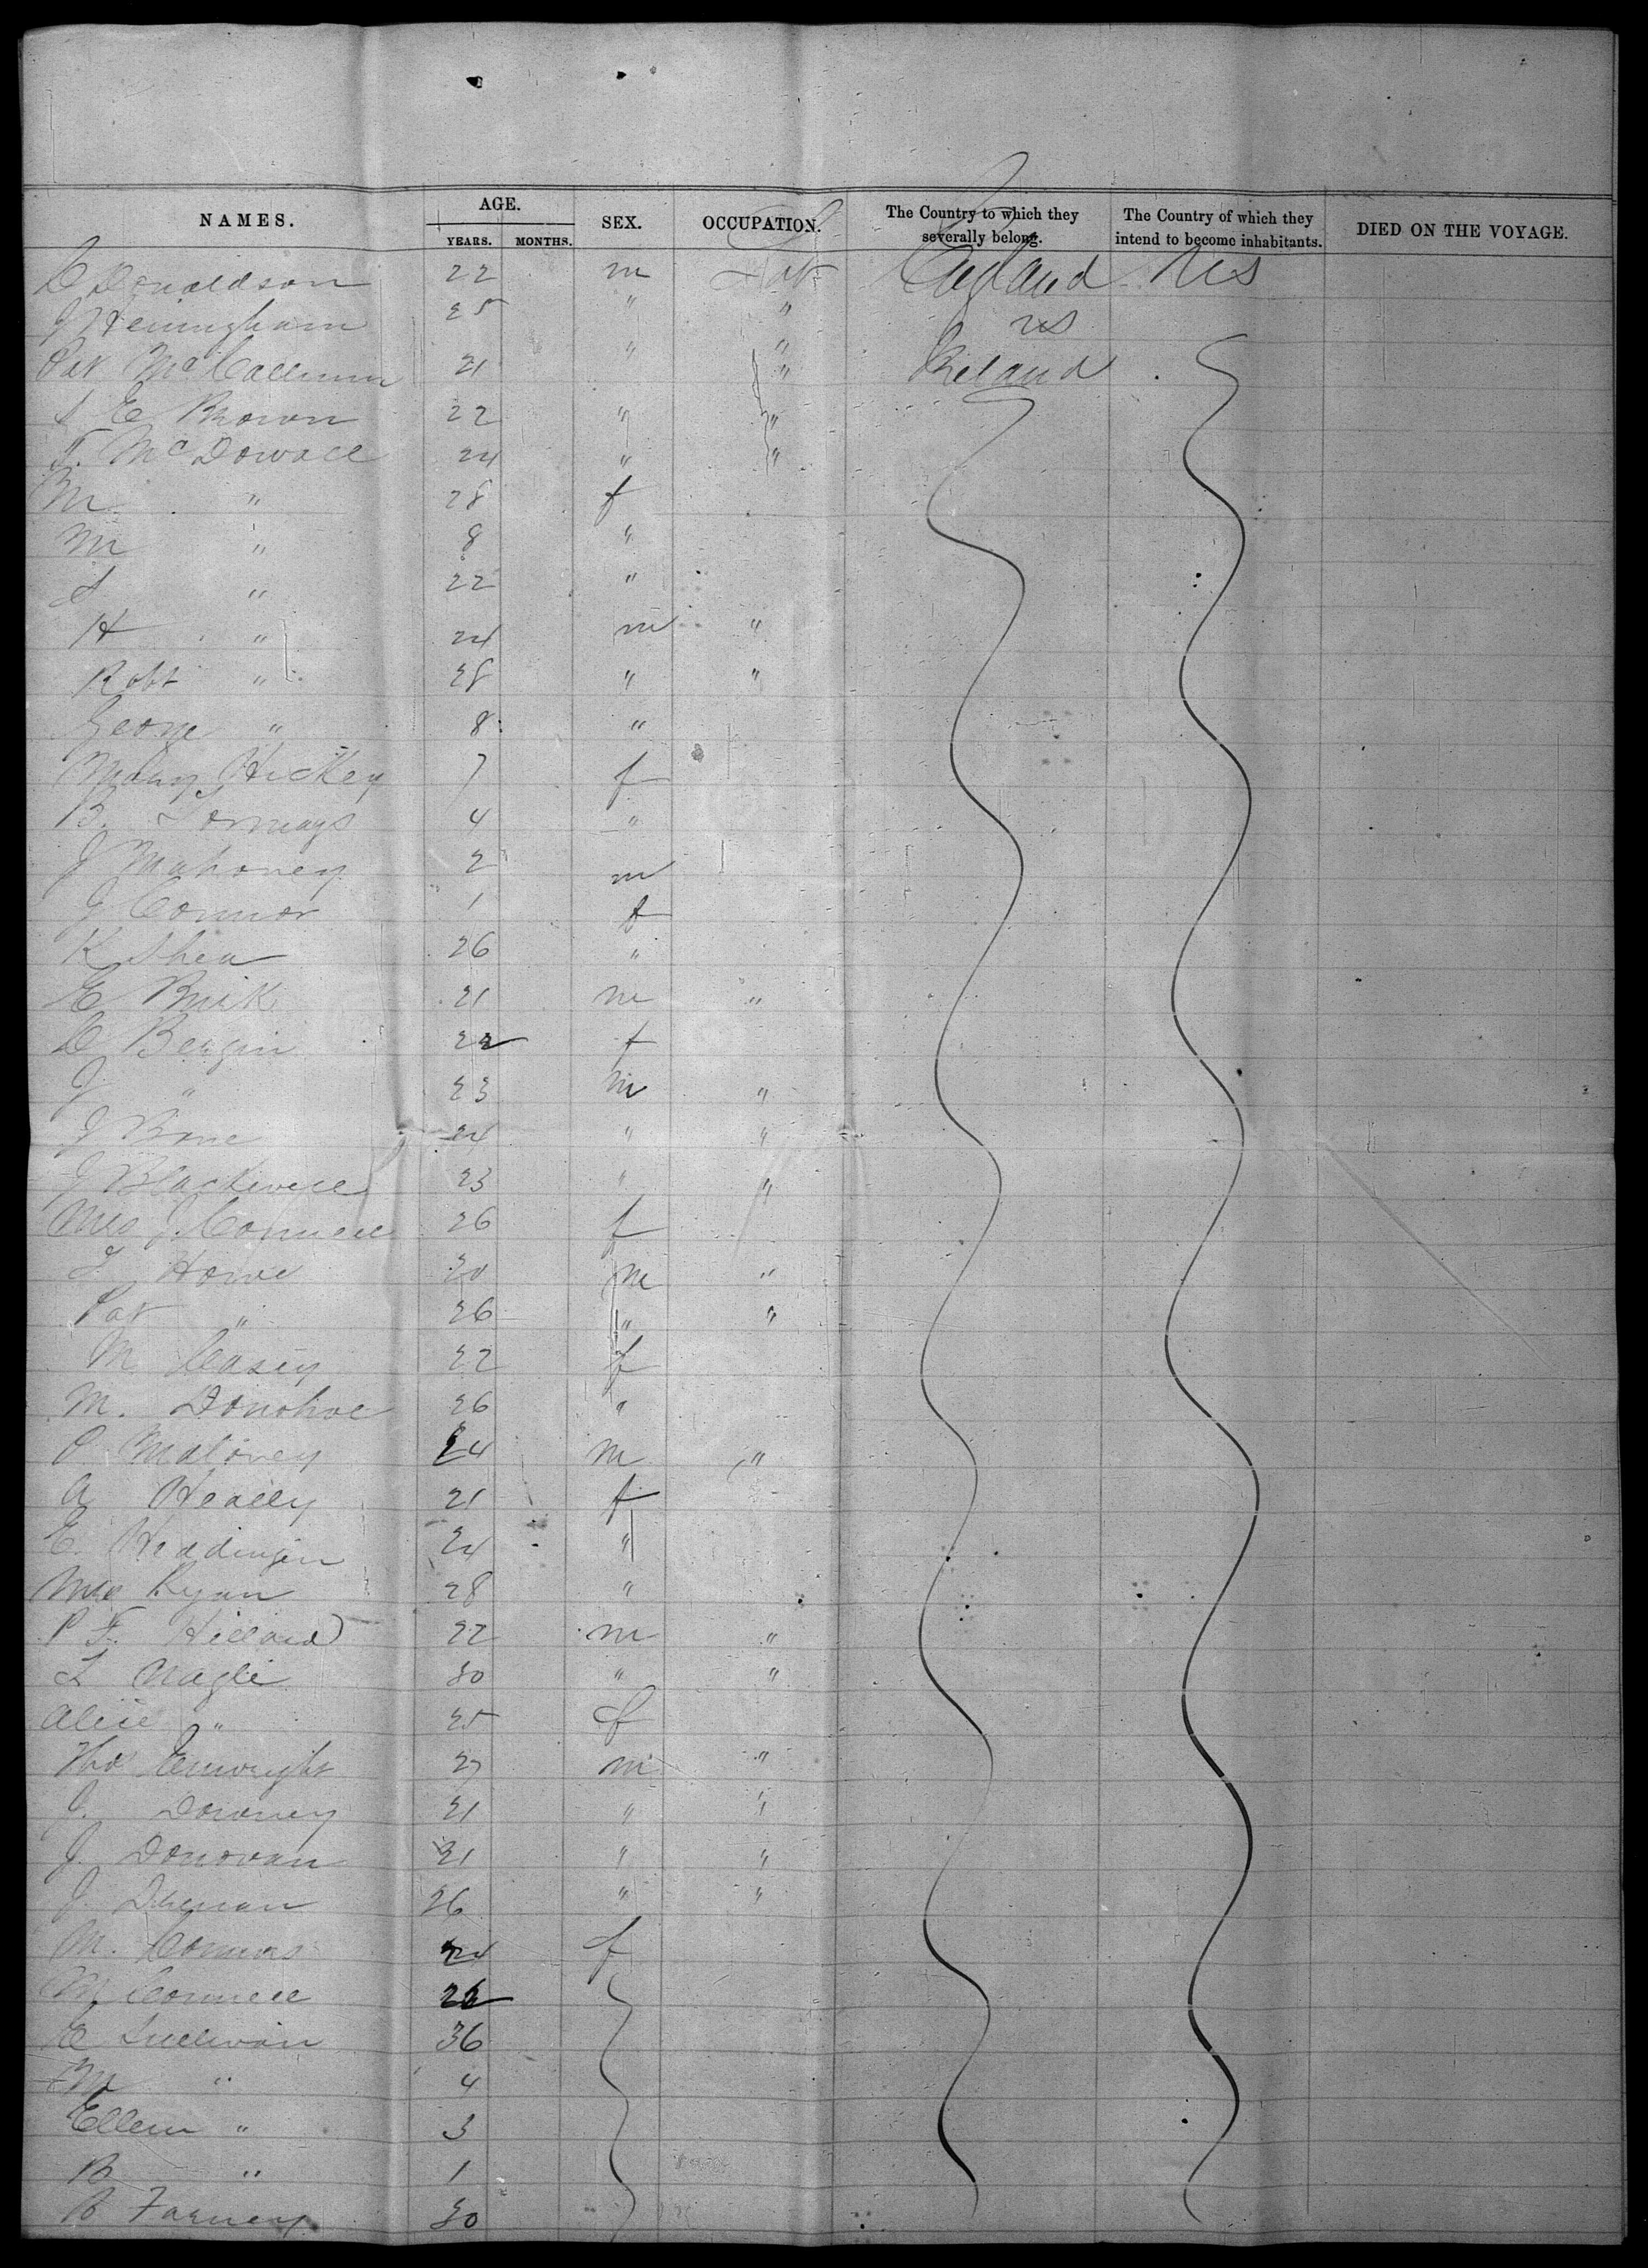 NAMES. AGE. SEX. OCCUPATION. The Country to which they severally belong. The Country of which they intend to become inhabitants. DIED ON THE VOYAGE.
YEARS. MONTHS.
C Donaldson 22 m Lab England US
J Heningham 25 " " US
Pat McCallum 21 " " Ireland
S E Brown 22 " "
T. McDowall 24 " "
M " 28 f
M " 8 "
S " 22 "
H " 24 m "
Robt " 28 " "
George " 8 "
Mary Hickey 7 f
B. 4 "
J Mahoney 2 m
J Connor 1 f
K Shea 26 "
E 21 m "
C Bergin 22 f
J " 23 m "
J 24 " "
J Blackwell 23 " "
Mrs J. Connell 26 f
T Howe 30 m "
Pat " 26 " "
M Casey 22 f
M. Donohoe 26 "
P Maloney 24 m "
A Heally 21 f
E. 24 "
Mrs Ryan 28 "
P F. Hillard 22 m "
L Nagle 30 " "
Alice " 25 f
Tho Enwright 27 m "
J. Downey 21 " "
J. Donovan 21 " "
J. 26 " "
M. Connors 24 f
M Connell 26
E Sullivan 36
M " 4
Ellen " 3
B " 1
B Farney 30